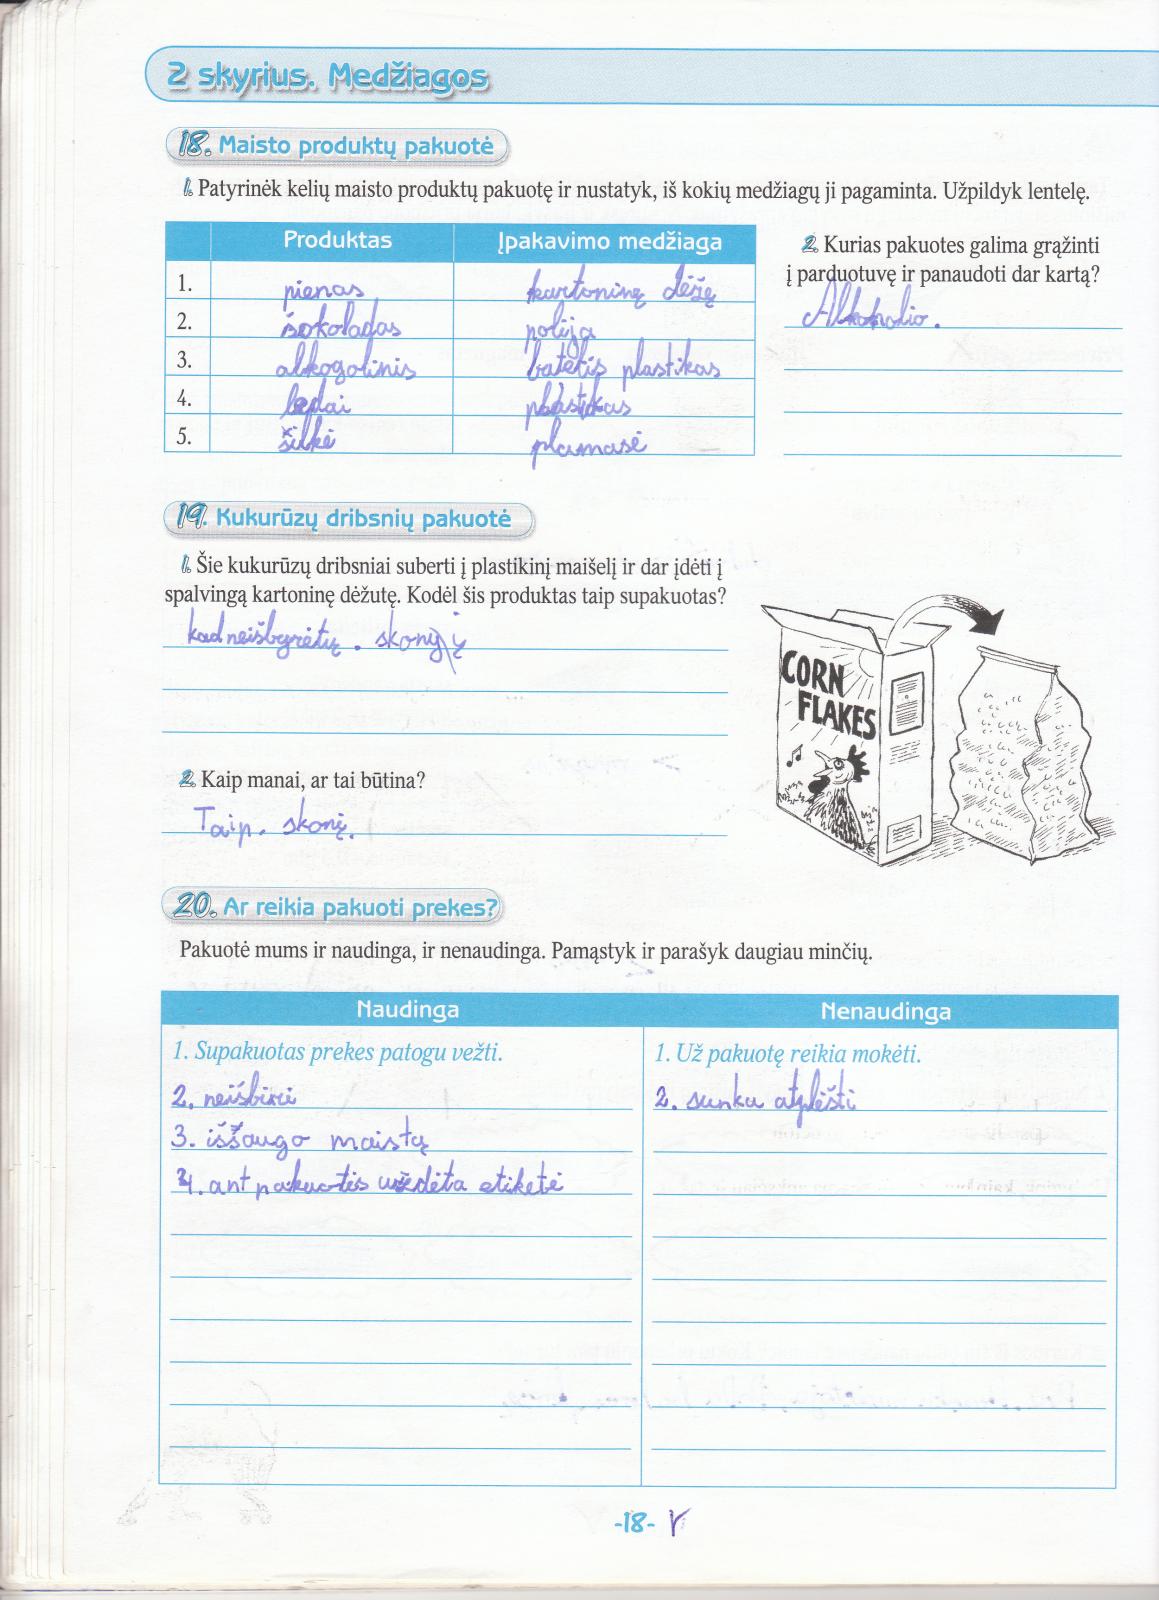 2 skyrius. Medžiagos
18. Maisto produktų pakuotė
1. Patyrinėk kelių maisto produktų pakuotę ir nustatyk, iš kokių medžiagų ji pagaminta. Užpildyk lentelę.
Produktas Įpakavimo medžiaga
1. pienas kartoninę dėžę
2. šokoladas polija
3. alkogolinis batelis plastikas
4. ledai plastikas
5. šilkė plamasė
2. Kurias pakuotes galima grąžinti
į parduotuvę ir panaudoti dar kartą?
Alkoholio.
19. Kukurūzų dribsnių pakuotė
1. Šie kukurūzų dribsniai suberti į plastikinį maišelį ir dar įdėti į
spalvingą kartoninę dėžutę. Kodėl šis produktas taip supakuotas?
kad neišbyrėtų. skonį
CORN
FLAKES
2. Kaip manai, ar tai būtina?
Taip. skonį.
20. Ar reikia pakuoti prekes?
Pakuotė mums ir naudinga, ir nenaudinga. Pamąstyk ir parašyk daugiau minčių.
Naudinga Nenaudinga
1. Supakuotas prekes patogu vežti. 1. Už pakuotę reikia mokėti.
2. neišbirė 2. sunku atplėšti
3. iššaugo maistą
4. ant pakuotės uždėta etiketė
-18-